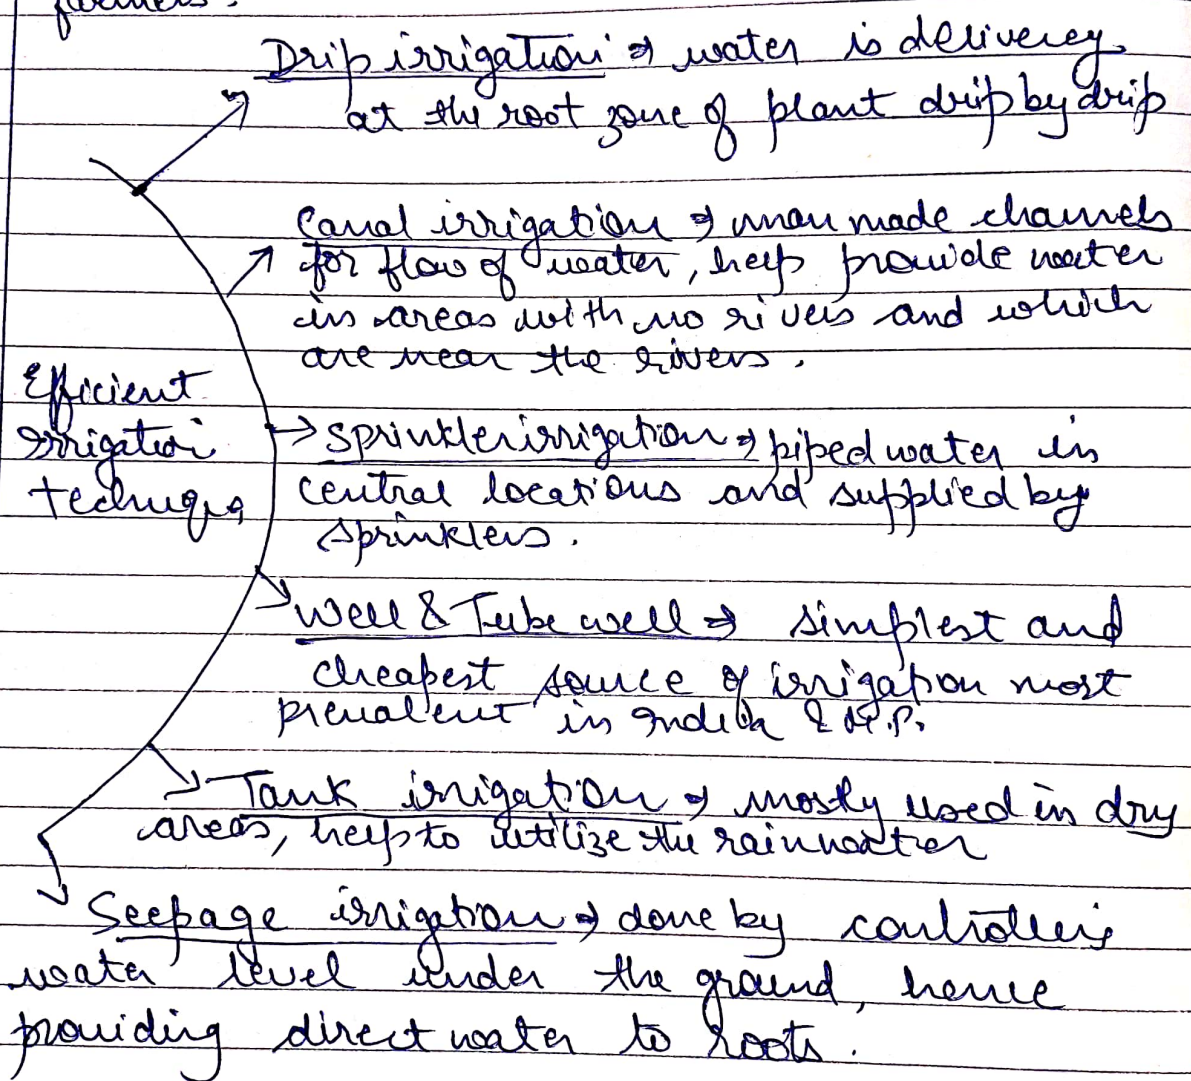 farmers.
Drip irrigation → water is deliverey
at the root zone of plant drip by drip
Canal irrigation → man made channels
for flow of water, help provide water
in areas with no rivers and which
are near the rivers.
Efficient
Irrigation
techniques
→ Sprinkler irrigation → piped water in
central locations and supplied by
sprinklers.
Well & Tube well → simplest and
cheapest source of irrigation most
prevalent in India & M.P.
Tank irrigation → mostly used in dry
areas, help to utilize the rainwater
Seepage irrigation → done by
water level under the ground, hence
providing direct water to roots.